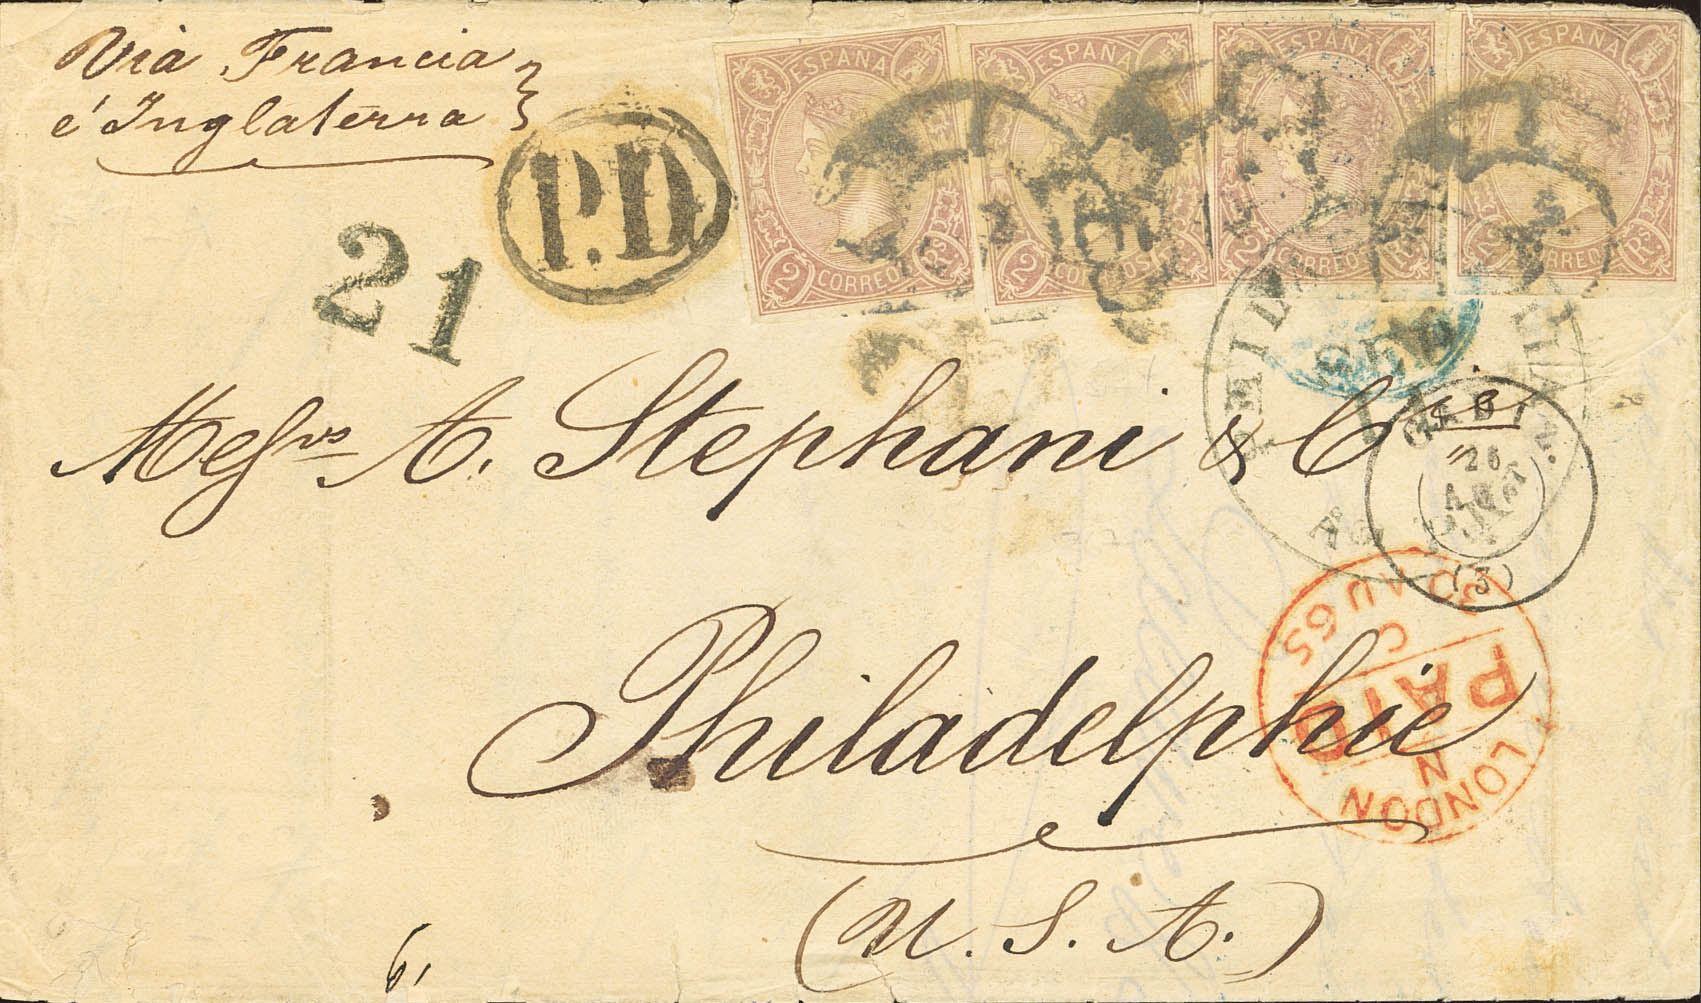 Via Francia
é Inglaterra
P.D
21
ESPAÑA
2 CORREOS Rs
ESPAÑA
2 CORREOS
ESPAÑA
2 CORREOS
ESPAÑA
2 CORREOS Rs
Messrs A. Stephani & Cie
CADIZ
26
(3)
Philadelphie
LONDON
N
PAID
C
30 AU 65
(U. S. A.)